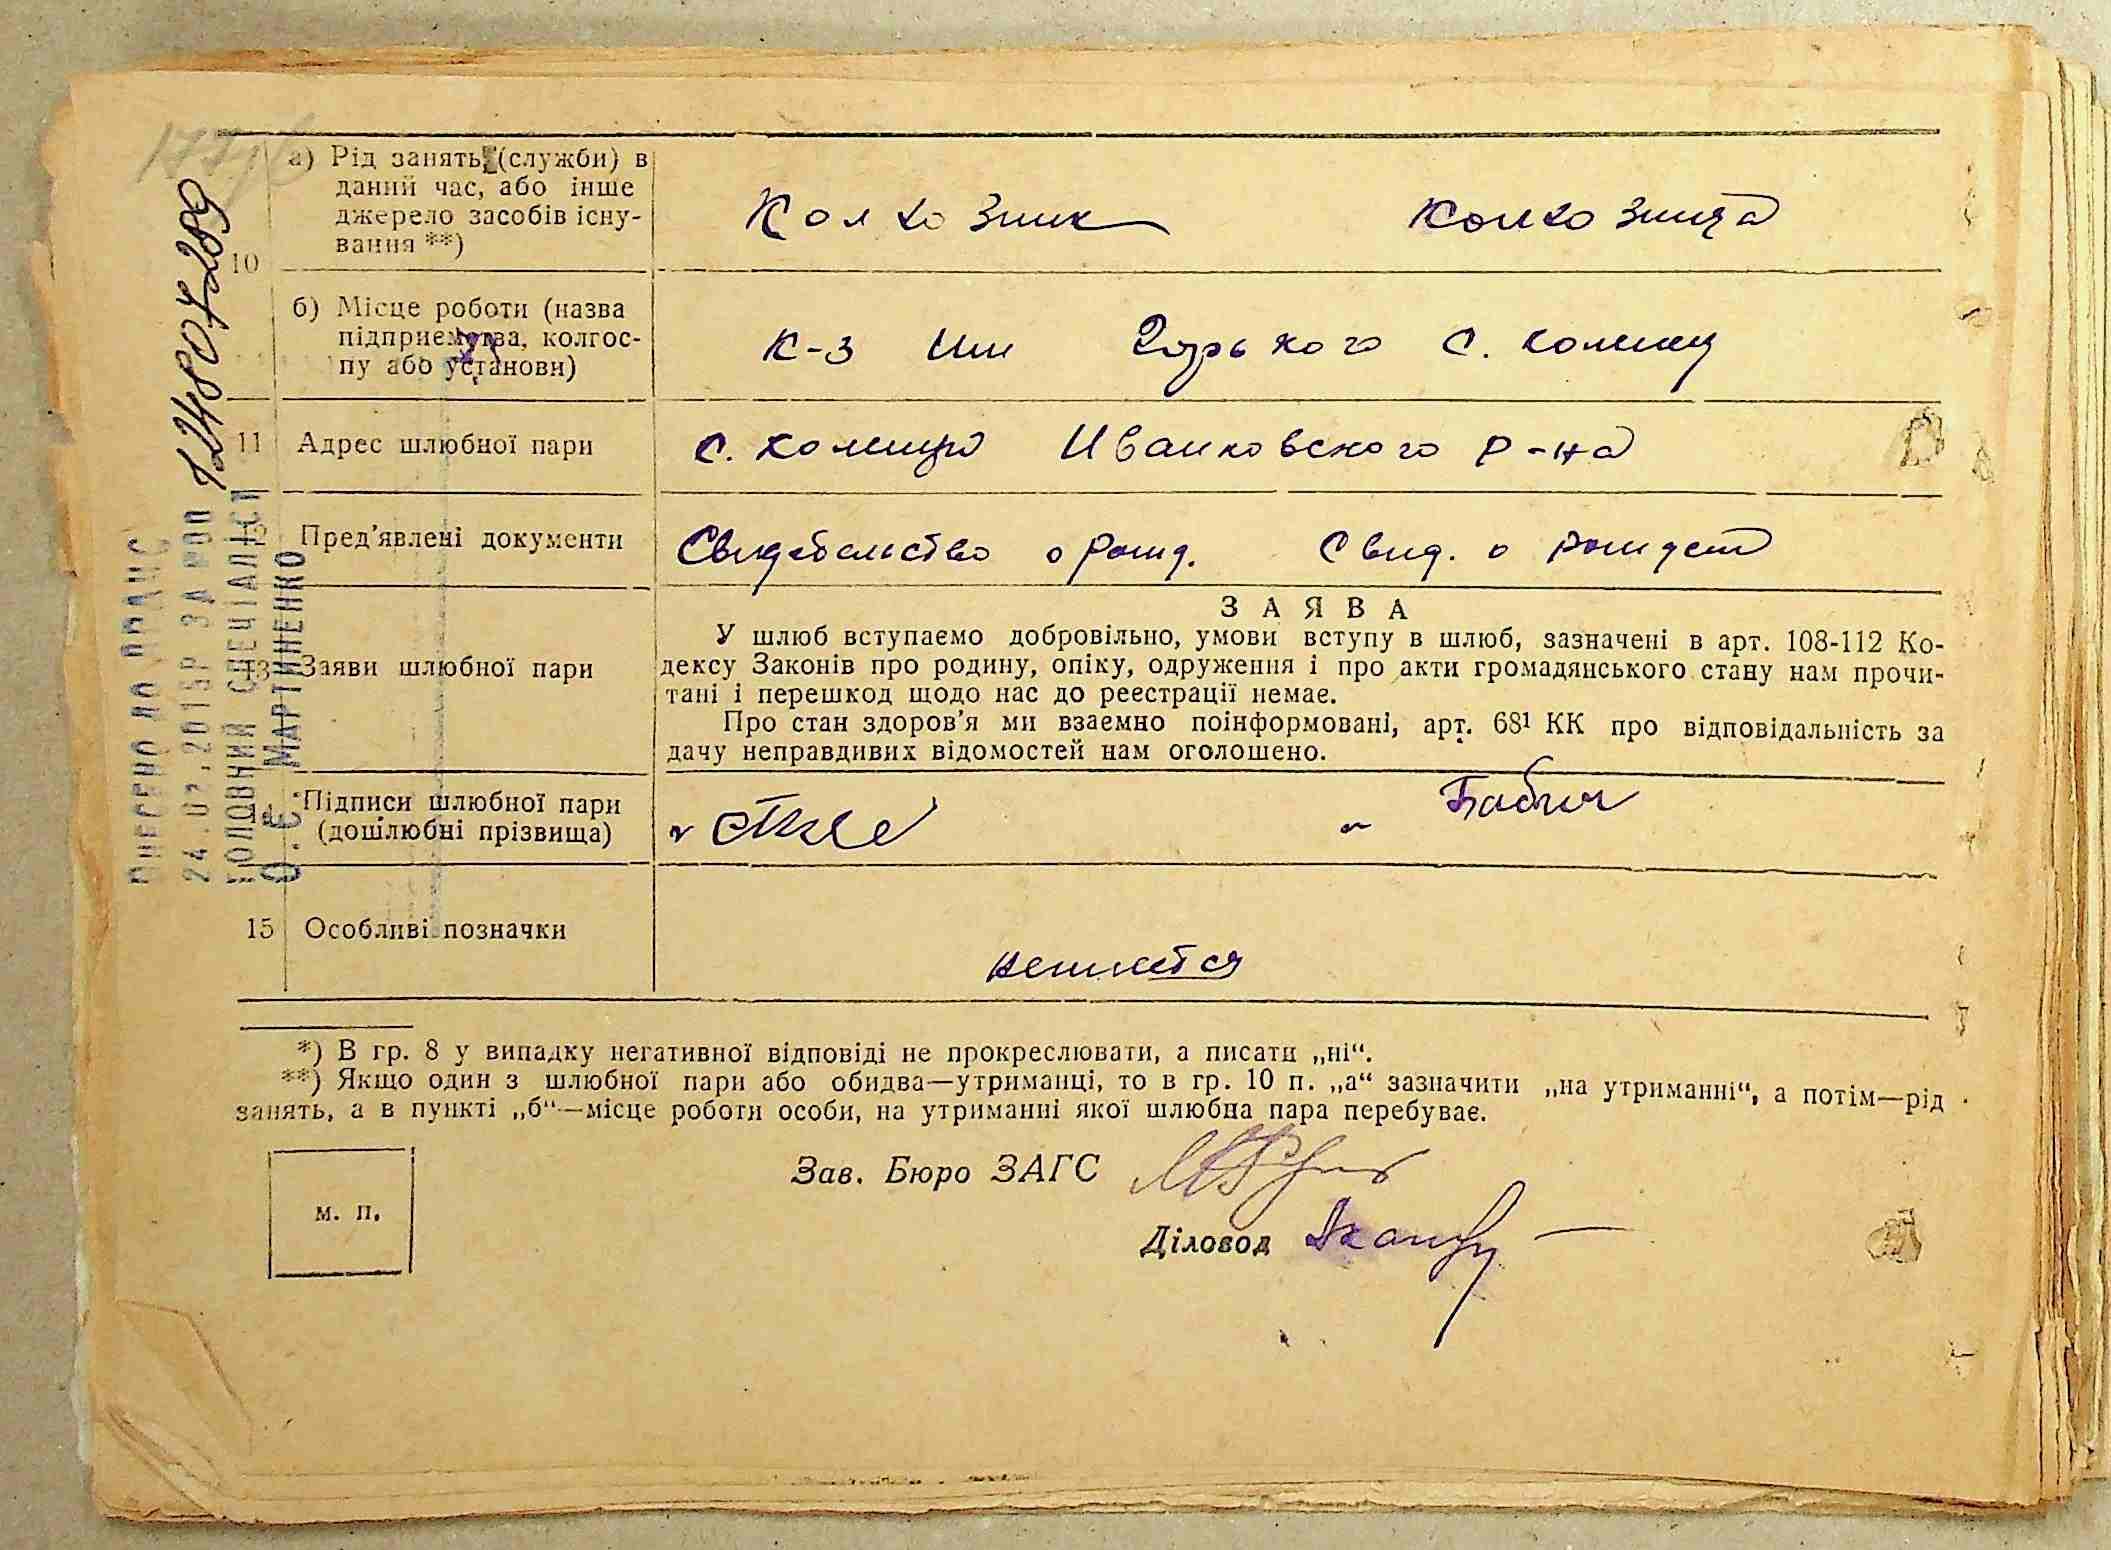 а) Рід занять (служби) в
даний час, або інше
джерело засобів існу-
вання **)
Колхозник Колхозница
10
б) Місце роботи (назва
підприємства, колгос-
пу або установи)
К-з им Горького с.
11 Адрес шлюбної пари
с. Иванковского р-на
12 Пред'явлені документи
Свидетельство о рожд. Свид. о рожден
13 Заяви шлюбної пари
ЗАЯВА
У шлюб вступаємо добровільно, умови вступу в шлюб, зазначені в арт. 108-112 Ко-
дексу Законів про родину, опіку, одруження і про акти громадянського стану нам прочи-
тані і перешкод щодо нас до реєстрації немає.
Про стан здоров'я ми взаємно поінформовані, арт. 68¹ КК про відповідальність за
дачу неправдивих відомостей нам оголошено.
14 Підписи шлюбної пари
(дошлюбні прізвища)
Бабич
15 Особливі позначки
неимеется
*) В гр. 8 у випадку негативної відповіді не прокреслювати, а писати „ні“.
**) Якщо один з шлюбної пари або обидва—утриманці, то в гр. 10 п. „а“ зазначити „на утриманні“, а потім—рід
занять, а в пункті „б“—місце роботи особи, на утриманні якої шлюбна пара перебуває.
Зав. Бюро ЗАГС
м. п.
Діловод
Внесено до ДРАЦС
24.02.2015р за №00 1248074289
Головний спеціаліст
О.Є. Мартиненко